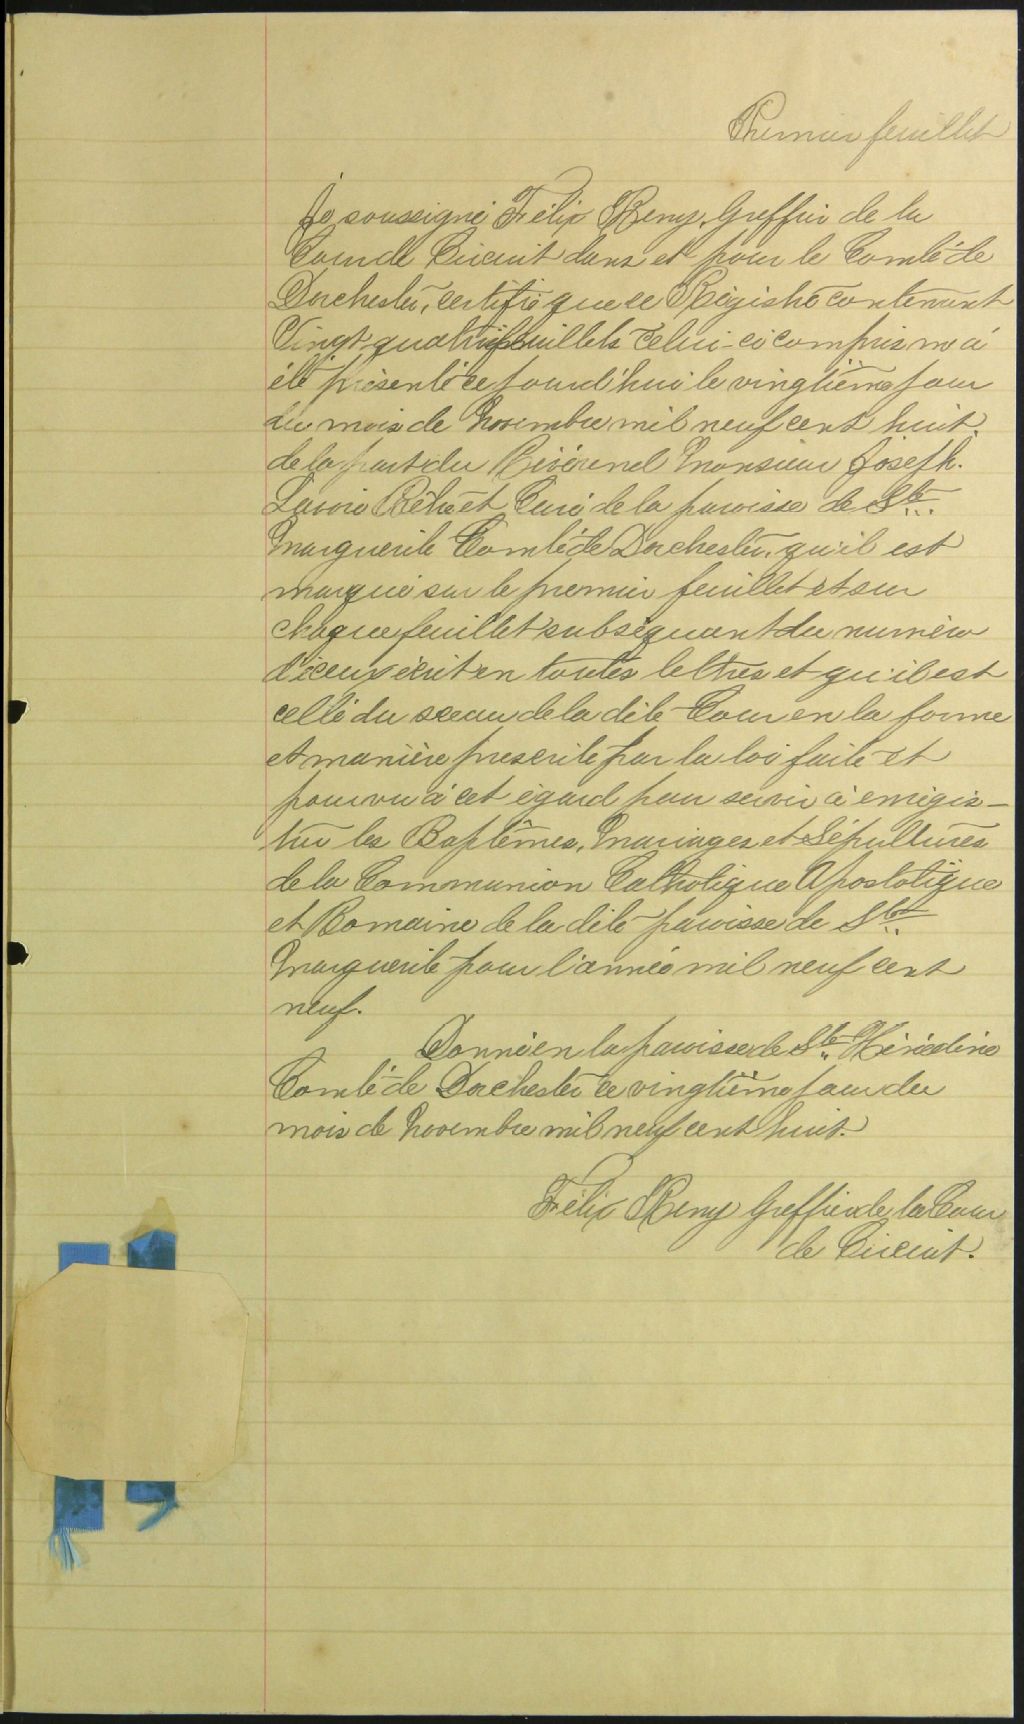 Premier feuillet
Je soussigné Félix Remy, Greffier de la
Cour de Circuit dans et pour le Comté de
Dorchester, certifie que ce Régistre contenant
Vingt-quatre feuillets celui-ci compris m'a
été présenté ce jourd'hui le vingtième jour
du mois de Novembre mil neuf cent huit.
de la part du Révérend Monsieur Joseph.
Lavoie Prêtre et Curé de la paroisse de Ste
Marguerite Comté de Dorchester, qu'il est
marqué sur le premier feuillet et sur
chaque feuillet subséquant du numéro
d'iceux écrit en toutes lettres et qu'il est
cellé du sceau de la dite Cour en la forme
et manière prescrite par la loi faite et
pourvu à cet égard pour servir à enrégis-
trer les Baptêmes, Mariages et Sépultures
de la Communion Catholique Apostolique
et Romaine de la dite paroisse de Ste
Marguerite pour l'année mil neuf cent
neuf.
Donné en la paroisse de Ste Hénédine
Comté de Dorchester ce vingtième jour du
mois de Novembre mil neuf cent huit.
Félix Remy Greffier de la Cour
de Circuit.